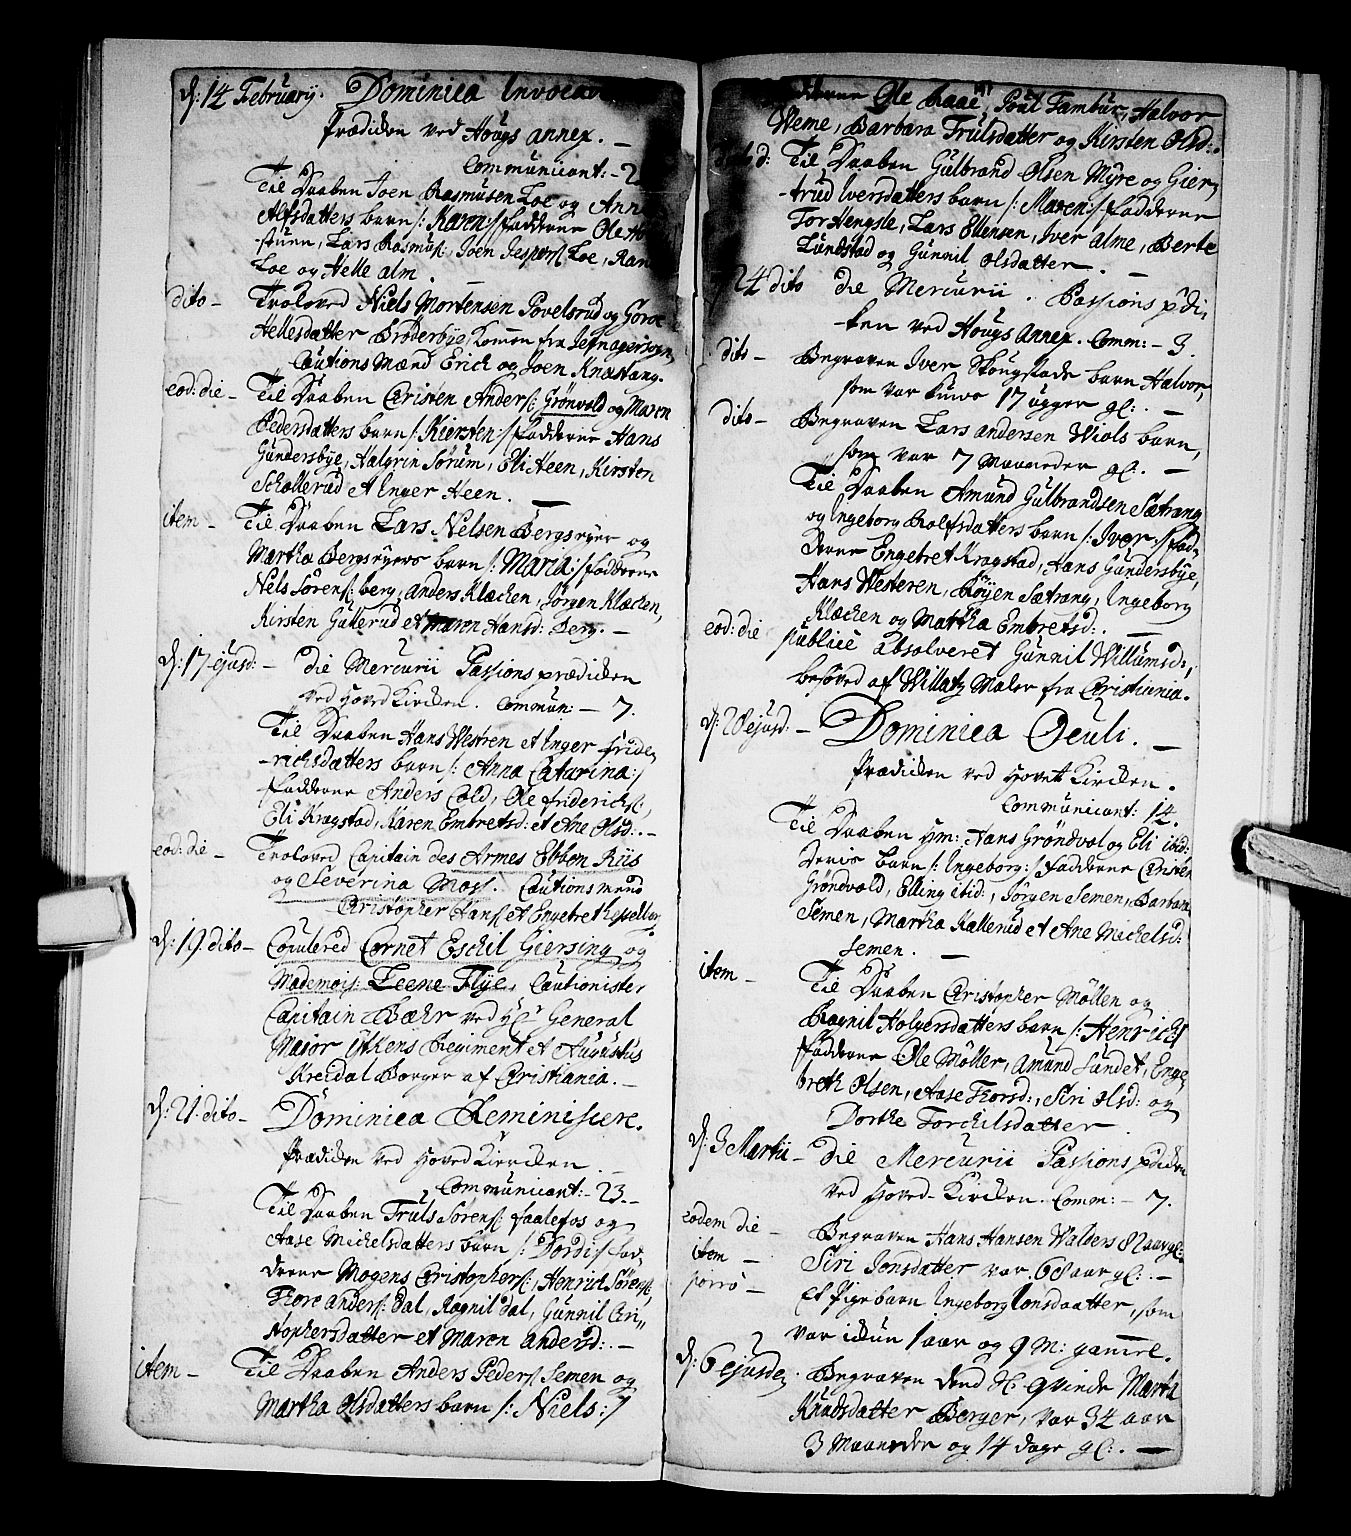 d: 14 February. Dominica Invoca
Prædiken ved Hougs annex. —
Communicant: - 2
Til Daaben Joen Rasmusen Loe og Anne
Alfsdatters barn /: Karen :/ fadderne Ole
stuen, Lars Rasmus:, Joen Jespers: Loe, Ran
Loe og Helle alm.
dito - Troloved Niels Mortensen Povelsrud og Goroe
Hellesdatter Bröderbye, kommen fra Jefnager sogn,
Cautions Mænd Erick og Joen Knæstang.
eod: die - Til Daaben Christen Anders: Grönvold og Maren
Pedersdatters barn /: Kiersten :/ fadderne Hans
Gundersbye, Halgrin Sørum, Eli Heen, Kirsten
Schollerud et Inger Heen. —
item - Til Daaben Lars Nelsen Bergs ryer og
Martha Bergsryers barn /: Maria :/ fadderne
Nels Sörens: berg, anders Klæcken, Jörgen Klæcken,
Kirsten Gullerud et Maren Hansd: Berg. —
d: 17 ejusd: - die Mercurii Passions prædicken
ved Hoved Kircken. Commun: - 7.
Til Daaben Hans Westren et Inger Fride-
richsdatters barn /: Anna Catarina :/
fadderne Anders Cold, Ole friderichs:,
Eli Kragstad, Karen Embretsd: et Ane Olsd: -
eod: die - Troloved Capitain des Armes Ebben Riis
og Severina Moss. Cautions mænd
Christopher Hans: et Engebret
d: 19. dito - Copulered Cornet Eschil Giersing og
Mademois: Leene Flye, Cautionister
Capitain Bæhr ved Hr General
Major Itkens Regiment et Augustus
Kreidal Borger af Christiania. —
d: 21. dito - Dominica Reminiscere.
Prædicken ved Hoved Kiercken. —
Communicant: - 23. -
Til Daaben Truls Sörens: faalefos og
Aase Michelsdatters barn /: Dordi :/ fad-
derne Mogens Christophers:, Henrich Sörens:,
Thore anders: dal, Ragnil dal, Gunnil Chri-
stophersdatter et Maren andersd: -
item - Til Daaben Anders Peders: Semen og
Martha Olsdatters barn /: Niels :/
fadderne Ole Aaae, Poul Tambur, Halvor
Weme, Barbara Trulsdatter og Kirsten Olsd:.
Til Daaben Gulbrand Olsen Myre og Gier-
trud Iversdatters barn /: Maren :/ fadderne
Tor Hengsle, Lars Ellensen, Iver alme, Berte
Lundstad og Gunnil Olsdatter. —
24 dito die Mercurii. Passions pdi-
ken ved Hougs Annex. Comm: - 3.
dito - Begraven Iver Skougstads barn Halvor,
som var kuns 17 ugger gl:. —
dito - Begraven Lars andersen Wiols barn,
som var 7 Maaneder gl. —
Til Daaben Amund Gulbrandsen Sætrang
og Ingeborg Rolfsdatters barn /: Iver :/ fad-
derne Engebret Kragstad, Hans Gundersbye,
Hans Westeren, Röyen Sætrang, Ingeborg
Klæcken og Martha Embretsd:. —
eod: die publicè absolveret Gunnil Willumsd:,
besöved af Willatz Maler fra Christiania.
d: 28 ejusd: - Dominica Oculi. —
Prædicken ved Hovet Kircken.
Communicant: 14.
Til Daaben Hans Gröndvol og Eli ibid:
deris barn /: Ingeborg: / fadderne Christen
Gröndvold, Elling ibid:, Jörgen Semen, Barbara
Semen, Martha Kallerud et Ane Michelsd:
Semen. —
item - Til Daaben Christopher Möllen og
Ragnil Holgersdatters barn /: Henrich :/
fadderne Ole Möller, Amund Sundet, Enge-
breth Olsen, Aase Thorsd:, Siri Olsd: og
Dorthe Torchilsdatter.
d: 3 Martii - die Mercurii Passions pdicken
ved Hoved-Kircken. Comm: - 7.
eodem die - Begraven Hans Hansen Walders 82 aar gl:
item - Siri Jonsdatter var 68 aar gl:. -
porrò - et Pigebarn Ingeborg Jonsdaatter, som
var ickun 1 aar og 9 M: gammel.
d: 6 ejusdem. Begraven dend Sl: qvinde Marta
Knudsdatter Berger, var 34 aar
3 Maaneder og 14 dage gl:. —